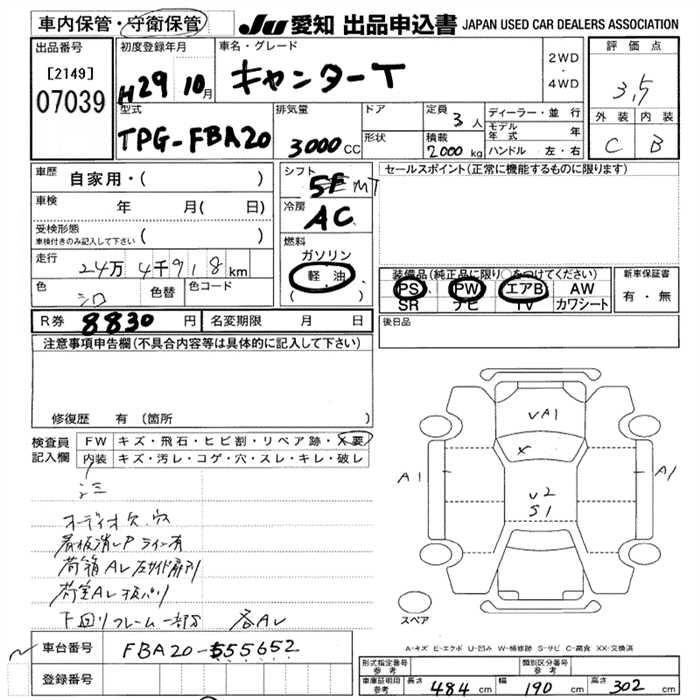 車内保管・守衛保管 JU 愛知 出品申込書 JAPAN USED CAR DEALERS ASSOCIATION
出品番号
[2149]
07039
初度登録年月
H29 10月
車名・グレード
キャンターT
2WD
・
4WD
評価点
3.5
外装 内装
C B
型式
TPG-FBA20
排気量
3000CC
ドア
形状
定員 3人
積載 2000kg
ディーラー・並行
モデル年式 年
ハンドル 左・右
車歴 自家用・( )
車検 年 月( 日)
受検形態
車検付きのみ記入して下さい ( )
走行 24万4千918km
色 シロ 色替 色コード
シフト 5F MT
冷房 AC
燃料
ガソリン
軽油
( )
セールスポイント(正常に機能するものに限ります)
装備品(純正品に限り○をつけてください)
PS PW エアB AW
SR ナビ TV カワシート
新車保証書
有・無
後日品
R券 8830円 名変期限 月 日
注意事項申告欄(不具合内容等は具体的に記入して下さい)
修復歴 有(箇所 )
検査員記入欄
FW キズ・飛石・ヒビ割・リペア跡・X要
内装 キズ・汚レ・コゲ・穴・スレ・キレ・破レ
シミ
オーディオ欠.穴
看板消しPライン有
荷箱AL
荷室AL
下回りフレーム一部サ 各AL
VA1
X
A1 A1
V2
S1
スペア
A-キズ E-エクボ U-凹み W-補修跡 S-サビ C-腐食 XX-交換済
車台番号 FBA20-555652
登録番号
形式指定番号
参考
類別区分番号
参考
車庫証明用
参考
長さ 484cm 幅 190cm 高さ 302cm